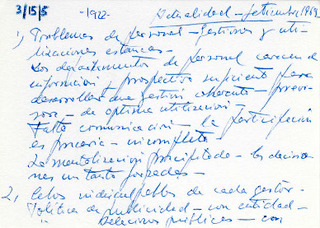 3/15/5 -1972- Actualidad - Setiembre, 1969
1) Problemas de personal - Gestiones y uti-
lizaciones estancas -
Los departamentos de personal carecen de
información prospectiva suficiente para
desarrollar una gestión coherente - previ-
sora - de óptima utilización -
Falta comunicación - la participación
es precaria - incompleta -
La mentalización precipitada - las decisio-
nes un tanto forzadas -
2) Celos indisculpables de cada gestor -
Política de publicidad - con entidad -
" Relaciones públicas - con